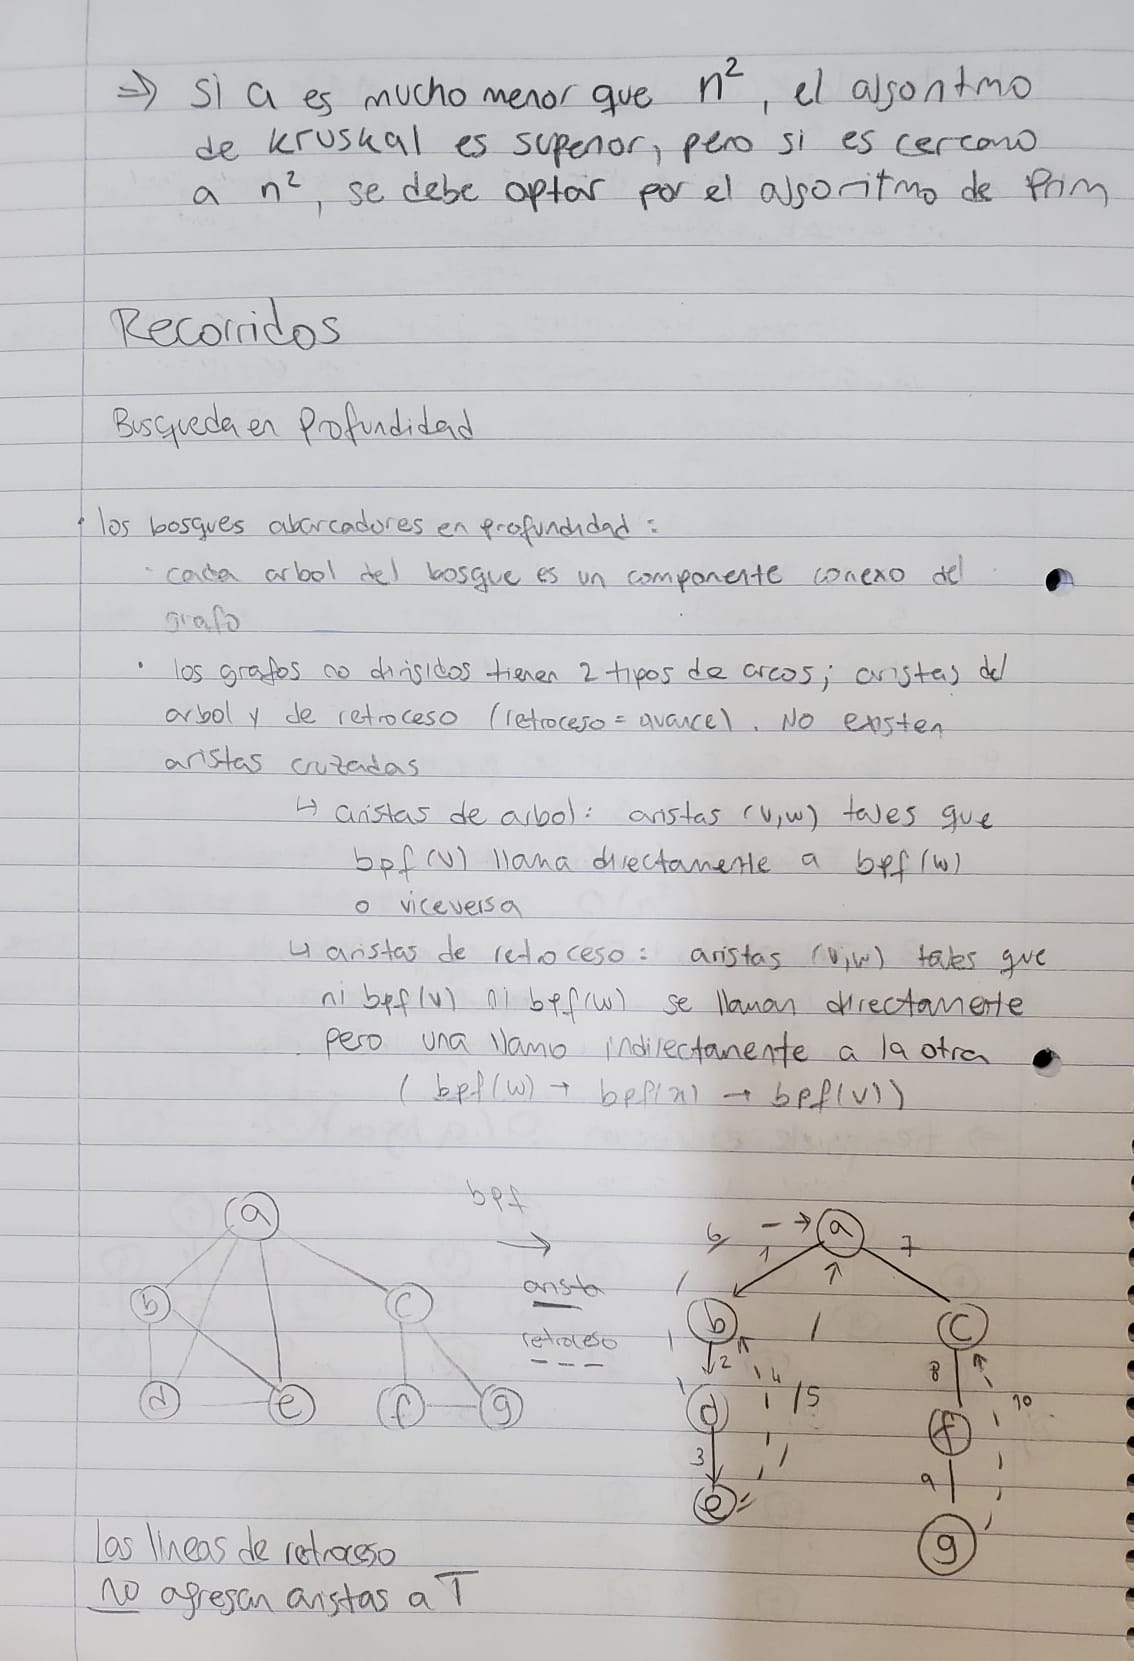 ⇒ Si a es mucho menor que n², el algoritmo
de kruskal es superior, pero si es cercano
a n², se debe optar por el algoritmo de Prim
Recorridos
Busqueda en Profundidad
· los bosques abarcadores en profundidad:
· cada arbol del bosque es un componente conexo del
grafo
· los grafos no dirigidos tienen 2 tipos de arcos; aristas del
arbol y de retroceso (retroceso = avance). No existen
aristas cruzadas
↳ aristas de arbol: aristas (v,w) tales que
bpf(v) llama directamente a bpf(w)
o viceversa
↳ aristas de retroceso: aristas (v,w) tales que
ni bpf(v) ni bpf(w) se llaman directamente
pero una llamo indirectamente a la otra
(bpf(w) → bpf(x) → bpf(v))
a
b c
d e f g
bpf
→
arista
retroceso
6 a 7
1
b c
2 4 8
d 5 f 10
3 9
e g
Las lineas de retroceso
no agregan aristas a T